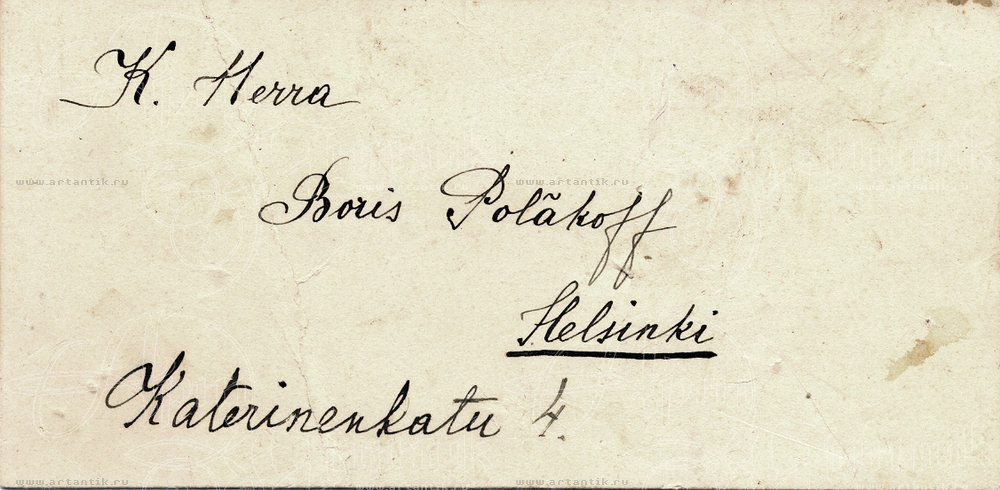 K. Herra
Boris Poläkoff
Helsinki
Katerinenkatu 4.
www.artantik.ru www.artantik.ru www.artantik.ru
www.artantik.ru www.artantik.ru www.artantik.ru